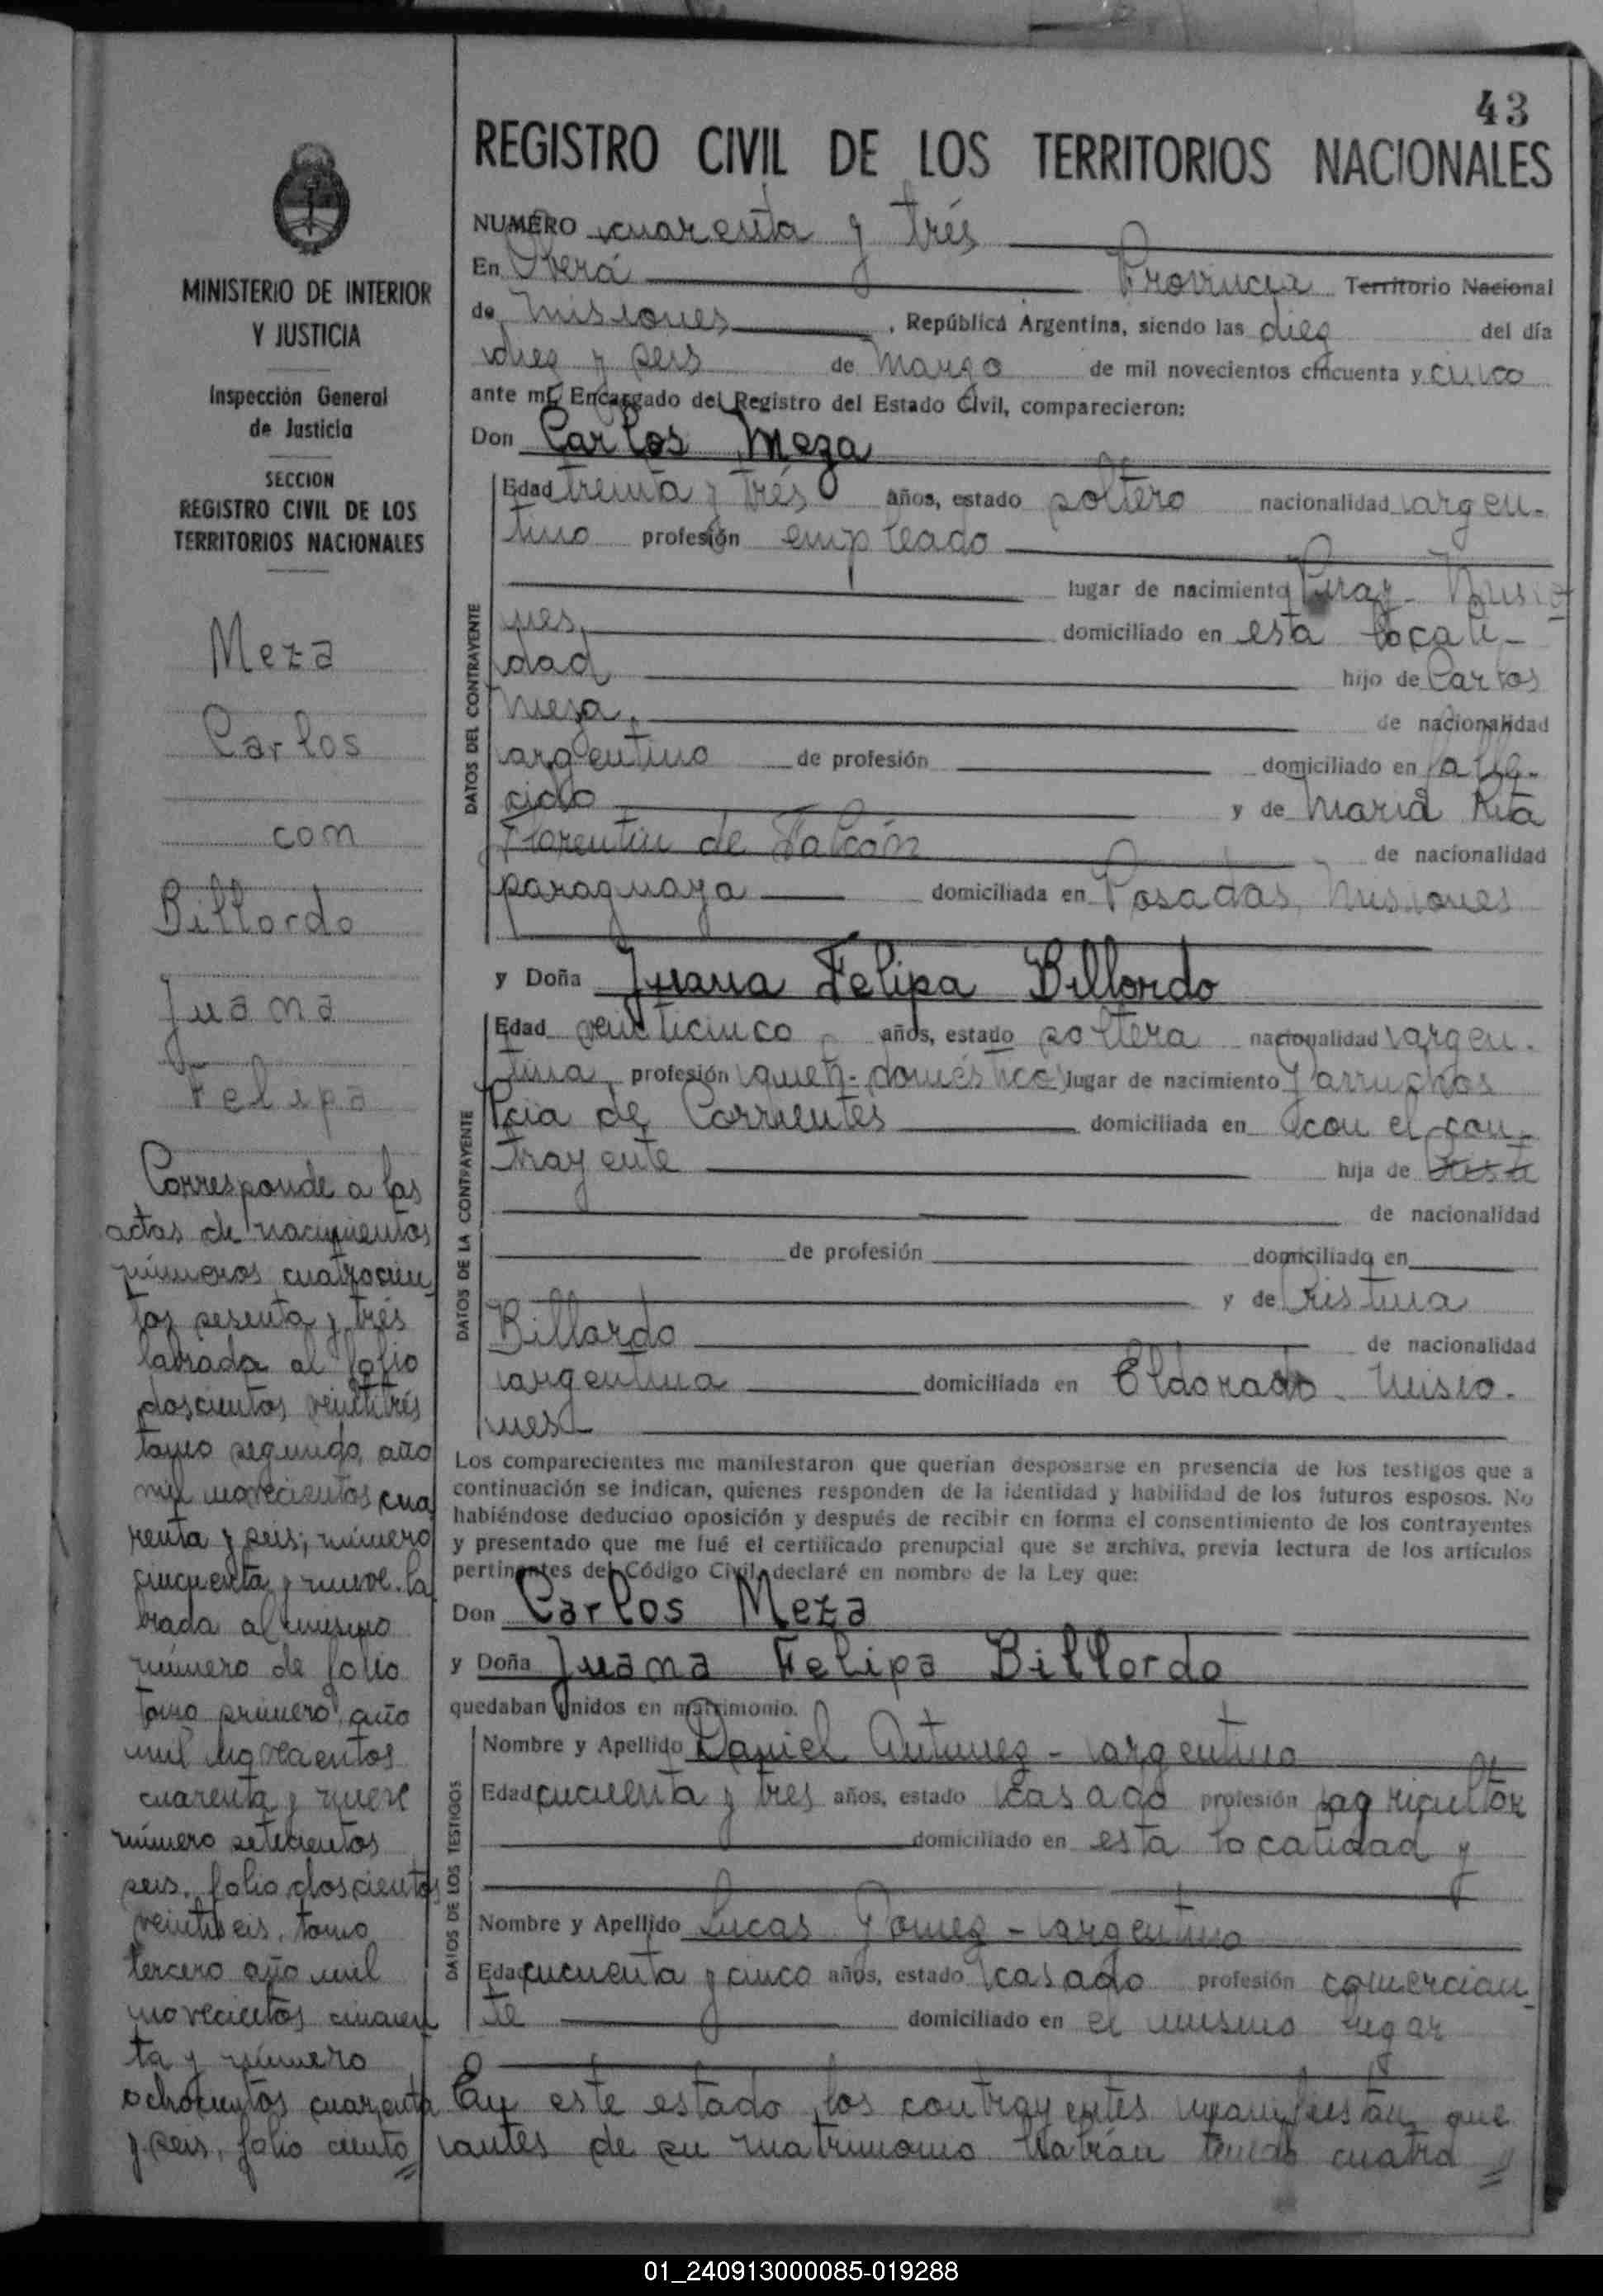 43
REGISTRO CIVIL DE LOS TERRITORIOS NACIONALES
MINISTERIO DE INTERIOR
Y JUSTICIA
Inspección General
de Justicia
SECCION
REGISTRO CIVIL DE LOS
TERRITORIOS NACIONALES
Meza
Carlos
con
Billordo
Juana
Felipa
Corresponde a las
actas de nacimientos
números cuatrocien
tos sesenta y trés
labrada al folio
doscientos veintitrés
tomo segundo, año
mil novecientos cua
renta y seis; número
cincuenta y nueve. la
brada al mismo
número de folio
tomo primero año
mil novecientos
cuarenta y nueve
número setecientos
seis, folio doscientos
veintiseis, tomo
tercero año mil
novecientos cincuen
ta y número
ochocientos cuarenta
y seis, folio ciento
NUMERO cuarenta y trés
En Oberá Provincia Territorio Nacional
de Misiones, República Argentina, siendo las diez del día
diez y seis de Marzo de mil novecientos cincuenta y cinco
ante mí, Encargado del Registro del Estado Civil, comparecieron:
Don Carlos Meza
DATOS DEL CONTRAYENTE
Edad treinta y trés años, estado soltero nacionalidad argen-
tino profesión empleado
lugar de nacimiento Piray - Misio
nes, domiciliado en esta locali-
dad hijo de Carlos
Meza, de nacionalidad
argentino de profesión domiciliado en falle-
cido y de Maria Rita
Florentin de Falcón de nacionalidad
paraguaya domiciliada en Posadas, Misiones
y Doña Juana Felipa Billordo
DATOS DE LA CONTRAYENTE
Edad veinticinco años, estado soltera nacionalidad argen-
tina profesión queh. domésticos lugar de nacimiento Garruchos
Pcia de Corrientes domiciliada en con el con-
trayente hija de
de nacionalidad
de profesión domiciliado en
y de Cristina
Billordo de nacionalidad
argentina domiciliada en Eldorado - Misio-
nes
Los comparecientes me manifestaron que querían desposarse en presencia de los testigos que a
continuación se indican, quienes responden de la identidad y habilidad de los futuros esposos. No
habiéndose deducido oposición y después de recibir en forma el consentimiento de los contrayentes
y presentado que me fué el certificado prenupcial que se archiva, previa lectura de los artículos
pertinentes del Código Civil, declaré en nombre de la Ley que:
Don Carlos Meza
y Doña Juana Felipa Billordo
quedaban unidos en matrimonio.
DATOS DE LOS TESTIGOS
Nombre y Apellido Daniel Antunez - argentino
Edad cincuenta y tres años, estado casado profesión agricultor
domiciliado en esta localidad y
Nombre y Apellido Lucas Gomez - argentino
Edad cincuenta y cinco años, estado casado profesión comercian-
te domiciliado en el mismo lugar
En este estado los contrayentes manifiestan que
antes de su matrimonio habían tenido cuatro
01_240913000085-019288